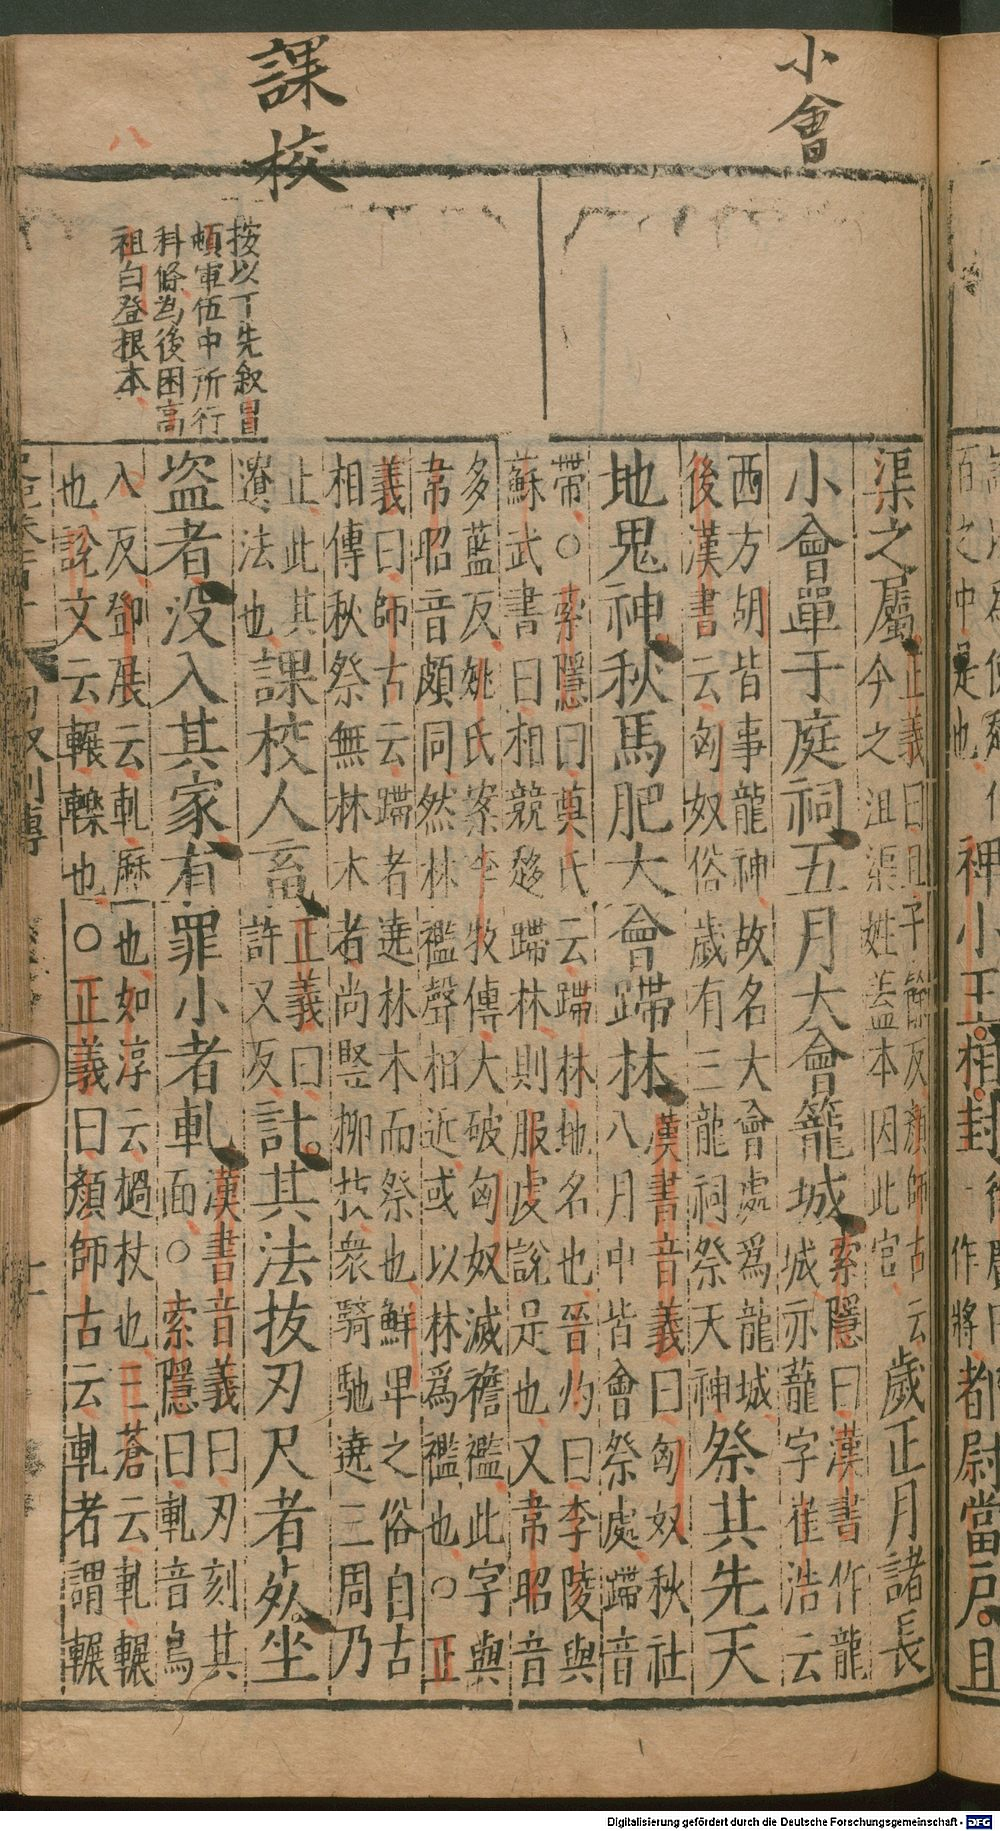 小會
課校
八
按以下先叙冒
頓軍伍中所行
科條為後困高
祖白登根本
渠之屬
正義曰且子餘反顏師古云
今之沮渠姓蓋本因此官
歲正月諸長
小會單于庭祠五月大會籠城
索隱曰漢書作龍
城亦蘢字崔浩云
西方胡皆事龍神故名大會處爲龍城
後漢書云匈奴俗歲有三龍祠祭天神
祭其先天
地鬼神秋馬肥大會蹛林
漢書音義曰匈奴秋社
八月中皆會祭處蹛音
帶○索隱曰莫氏云蹛林地名也晉灼曰李陵與
蘇武書曰相競趍蹛林則服虔說是也又韋昭音
多藍反姚氏案李牧傳大破匈奴滅襜襤此字與
韋昭音頗同然林襤聲相近或以林爲襤也○正
義曰師古云蹛者遶林木而祭也鮮卑之俗自古
相傳秋祭無林木者尚竪柳枝衆騎馳遶三周乃
止此其
遺法也
課校人畜
正義曰
許又反
計其法拔刃尺者死坐
盜者没入其家有罪小者軋
漢書音義曰刃刻其
面○索隱曰軋音烏
入反鄧展云軋歷也如淳云檛杖也三蒼云軋輾
也說文云輾轢也○正義曰顏師古云軋者謂輾
匈奴列傳
十一
百之中是也
裨小王相封
作將
都尉當戶且
Digitalisierung gefördert durch die Deutsche Forschungsgemeinschaft - DFG